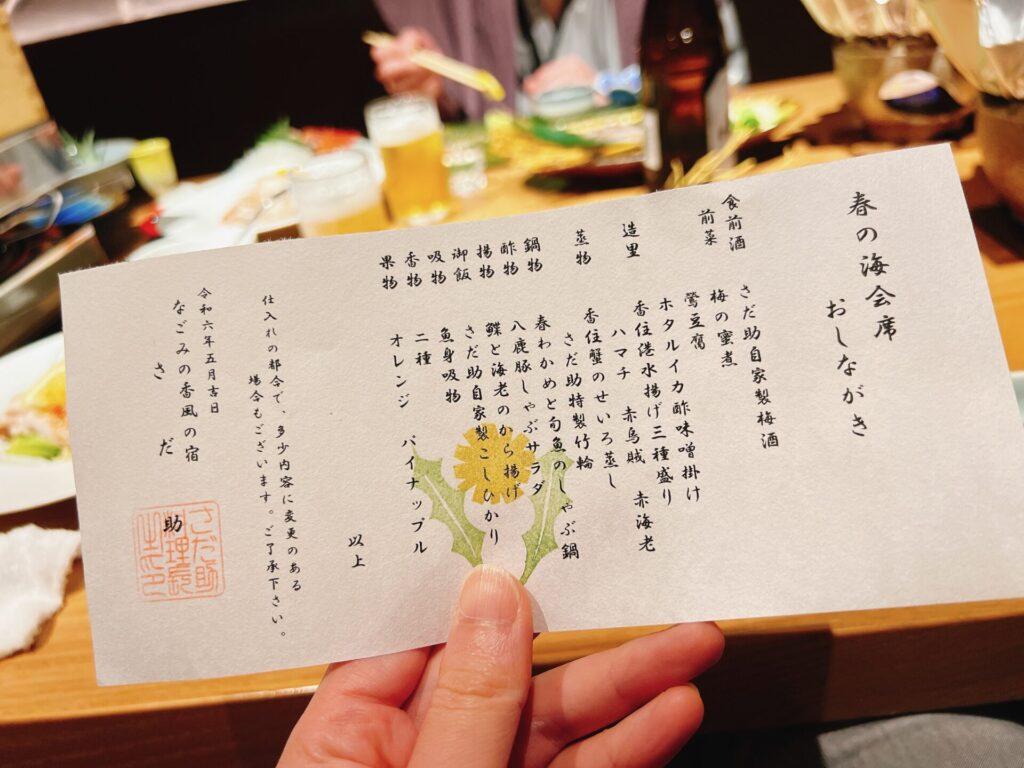 春の海会席
おしながき
食前酒 さだ助自家製梅酒
前菜 梅の蜜煮
鶯豆腐
ホタルイカ酢味噌掛け
造里 香住港水揚げ三種盛り
ハマチ 赤烏賊 赤海老
蒸物 香住蟹のせいろ蒸し
さだ助特製竹輪
鍋物 春わかめと旬魚のしゃぶ鍋
酢物 八鹿豚しゃぶサラダ
揚物 鰈と海老のから揚げ
御飯 さだ助自家製こしひかり
吸物 魚身吸物
香物 二種
果物 オレンジ パイナップル
以上
仕入れの都合で、多少内容に変更のある
場合もございます。ご了承下さい。
令和六年五月吉日
なごみの香風の宿
さだ助
さだ助
料理長